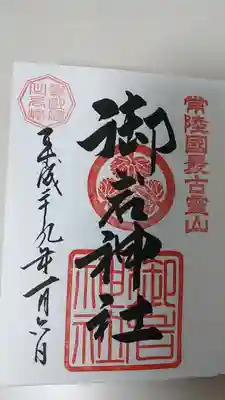 常陸國最古霊山
御岩神社
御岩神社
平成二十九年一月六日